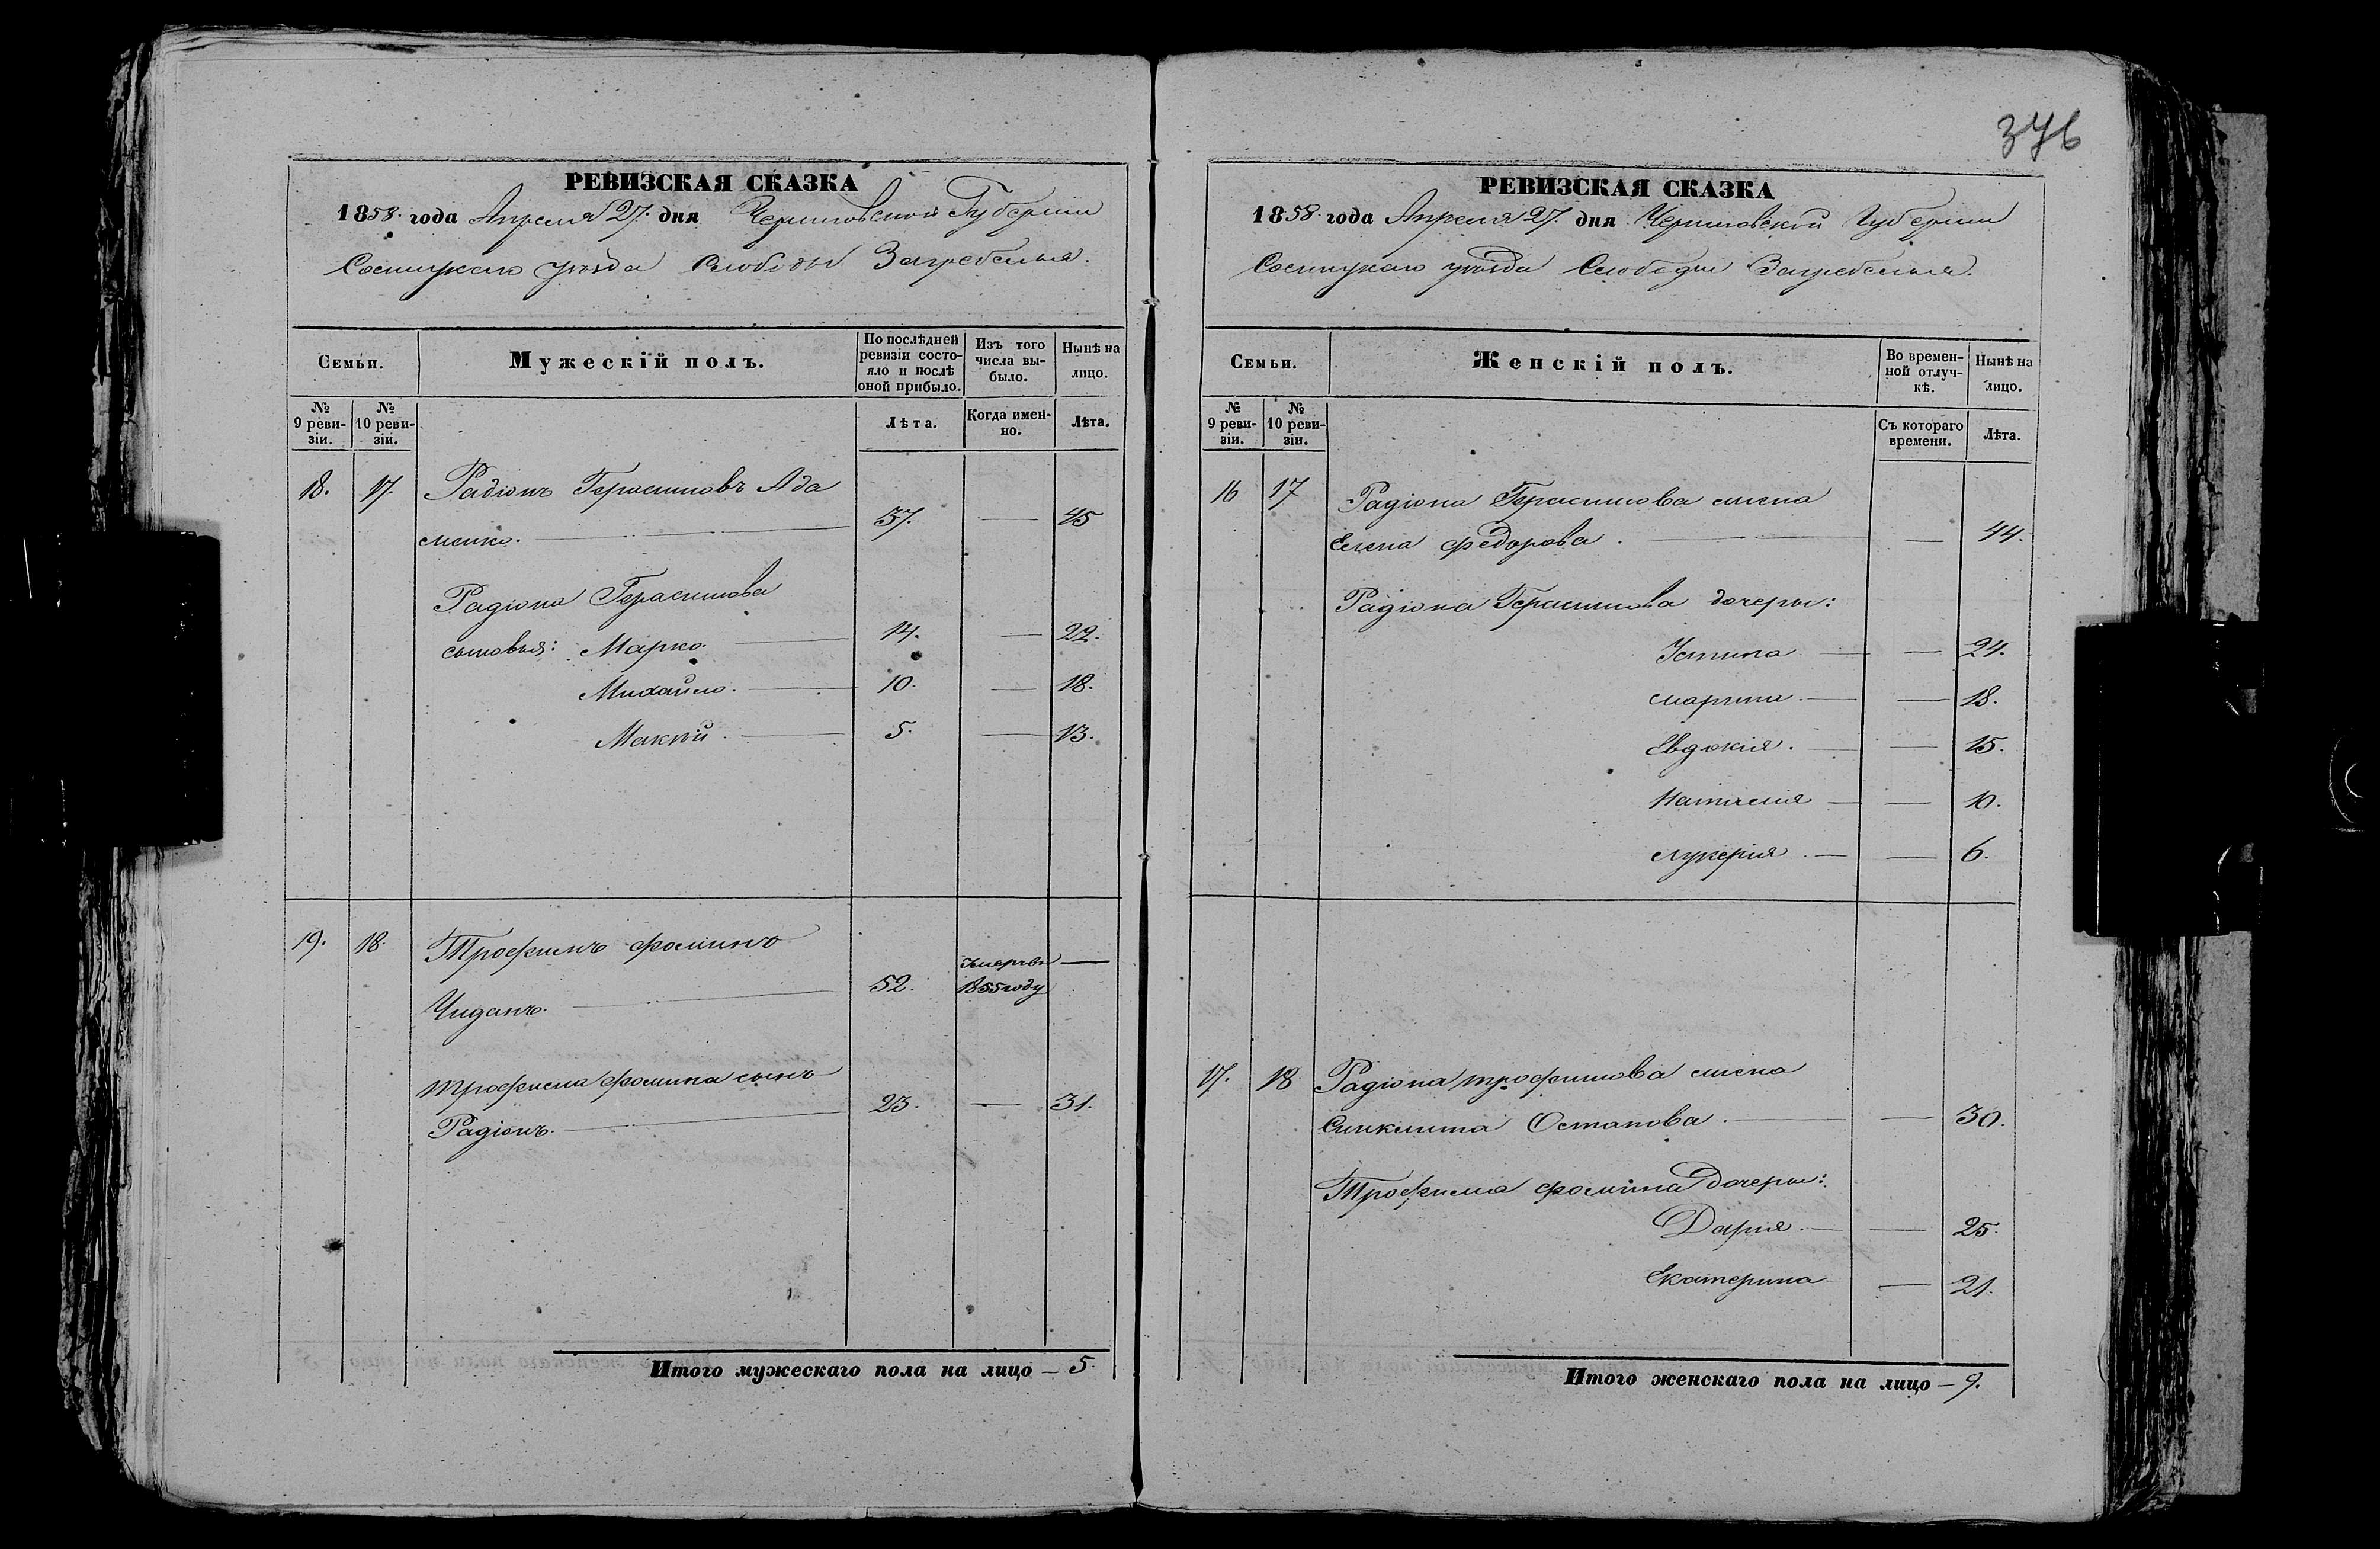 376
РЕВИЗСКАЯ СКАЗКА
1858. года Апреля 27. дня Черниговской Губернии
Сосницкаго уезда Слободы Загребелья.
Семьи.
Мужескій полъ.
По послѣдней ревизіи состояло и послѣ оной прибыло.
Изъ того числа выбыло.
Нынѣ на лицо.
№ 9 ревизіи.
№ 10 ревизіи.
Лѣта.
Когда именно.
Лѣта.
18. 17. Радіонъ Герасимовъ Ада
менко. 37. — 45
Радіона Герасимова
сыновья: Марко. 14. — 22.
Михайло. 10. — 18.
Макѣй. 5. — 13.
19. 18. Трофимъ Фоминъ
Чиданъ. 52. Умерѣ — 1855 году
Трофима Фомина сынъ
Радіонъ. 23. — 31.
Итого мужескаго пола на лицо — 5.
РЕВИЗСКАЯ СКАЗКА
1858. года Апреля 27. дня Черниговской Губернии
Сосницкаго уезда Слободы Загребелья.
Семьи.
Женскій полъ.
Во временной отлучкѣ.
Нынѣ на лицо.
№ 9 ревизіи.
№ 10 ревизіи.
Съ котораго времени.
Лѣта.
16 17 Радіона Герасимова жена
Елена Федорова. — 44.
Радіона Герасимова дочери:
Устина — 24.
Марина. — 18.
Евдокия. — 15.
Наталия — 10.
Лукерия. — 6.
17. 18 Радіона Трофимова жена
Синклита Остапова. — 30.
Трофима Фомина дочери:
Дария. — 25.
Екатерина — 21.
Итого женскаго пола на лицо — 9.